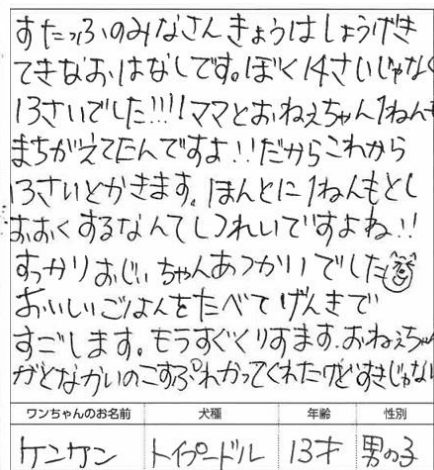 すたっふのみなさんきょうはしょうげき
てきなおはなしです。ぼく14さいじゃなく
13さいでした!!!!ママとおねえちゃん1ねんも
まちがえてたんですよ!!だからこれから
13さいとかきます。ほんとに1ねんもとし
おおくするなんてしつれいですよね!!
すっかりおじいちゃんあつかいでした
おいしいごはんをたべてげんきで
すごします。もうすぐくりすます。おねえちゃん
がとなかいのこすぷれかってくれたけどすきじゃない
ワンちゃんのお名前 犬種 年齢 性別
ケンケン トイプードル 13才 男の子